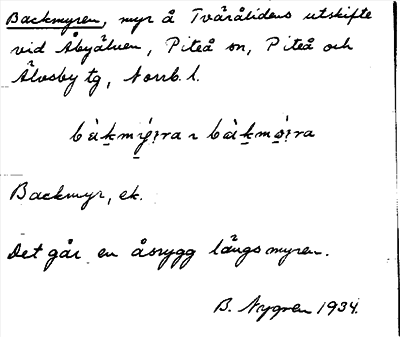 Backmyren, myr å Tvärålidens utskifte
vid Åbyälven, Piteå sn, Piteå och
Älvsby tg, Norrb. l.
Backmyr, ek.
Det går en åsrygg längs myren.
B. Nygren 1934.